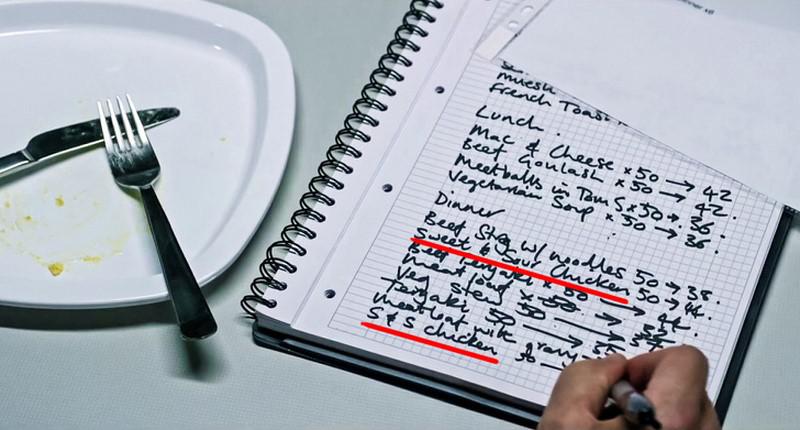 muesli
French Toast
Lunch
Mac & Cheese x50 → 42
Beef Goulash x 50 → 42.
Meatballs in Tom S x50 → 36.
Vegetarian Soup x 50 → 36.
Dinner
Beef Stew w/ noodles 50 → 38.
Sweet & Sour Chicken 50 → 44.
Beef Teriyaki x 50 → 44.
meat loaf x 50 →
Veg Stew 50 →
Teriyaki 50 → 35
meatloaf with gravy
S & S chicken 50 →